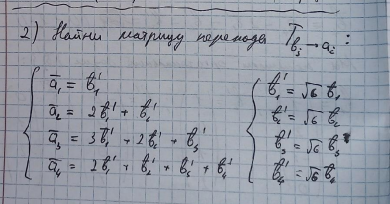 2) Найти матрицу перехода T b_j → a_i :
a̅₁ = b₁'
a̅₂ = 2b₁' + b₂'
a̅₃ = 3b₁' + 2b₂' + b₃'
a̅₄ = 2b₁' + b₂' + b₃' + b₄'
b₁' = √6 b₁
b₂' = √6 b₂
b₃' = √6 b₃
b₄' = √6 b₄